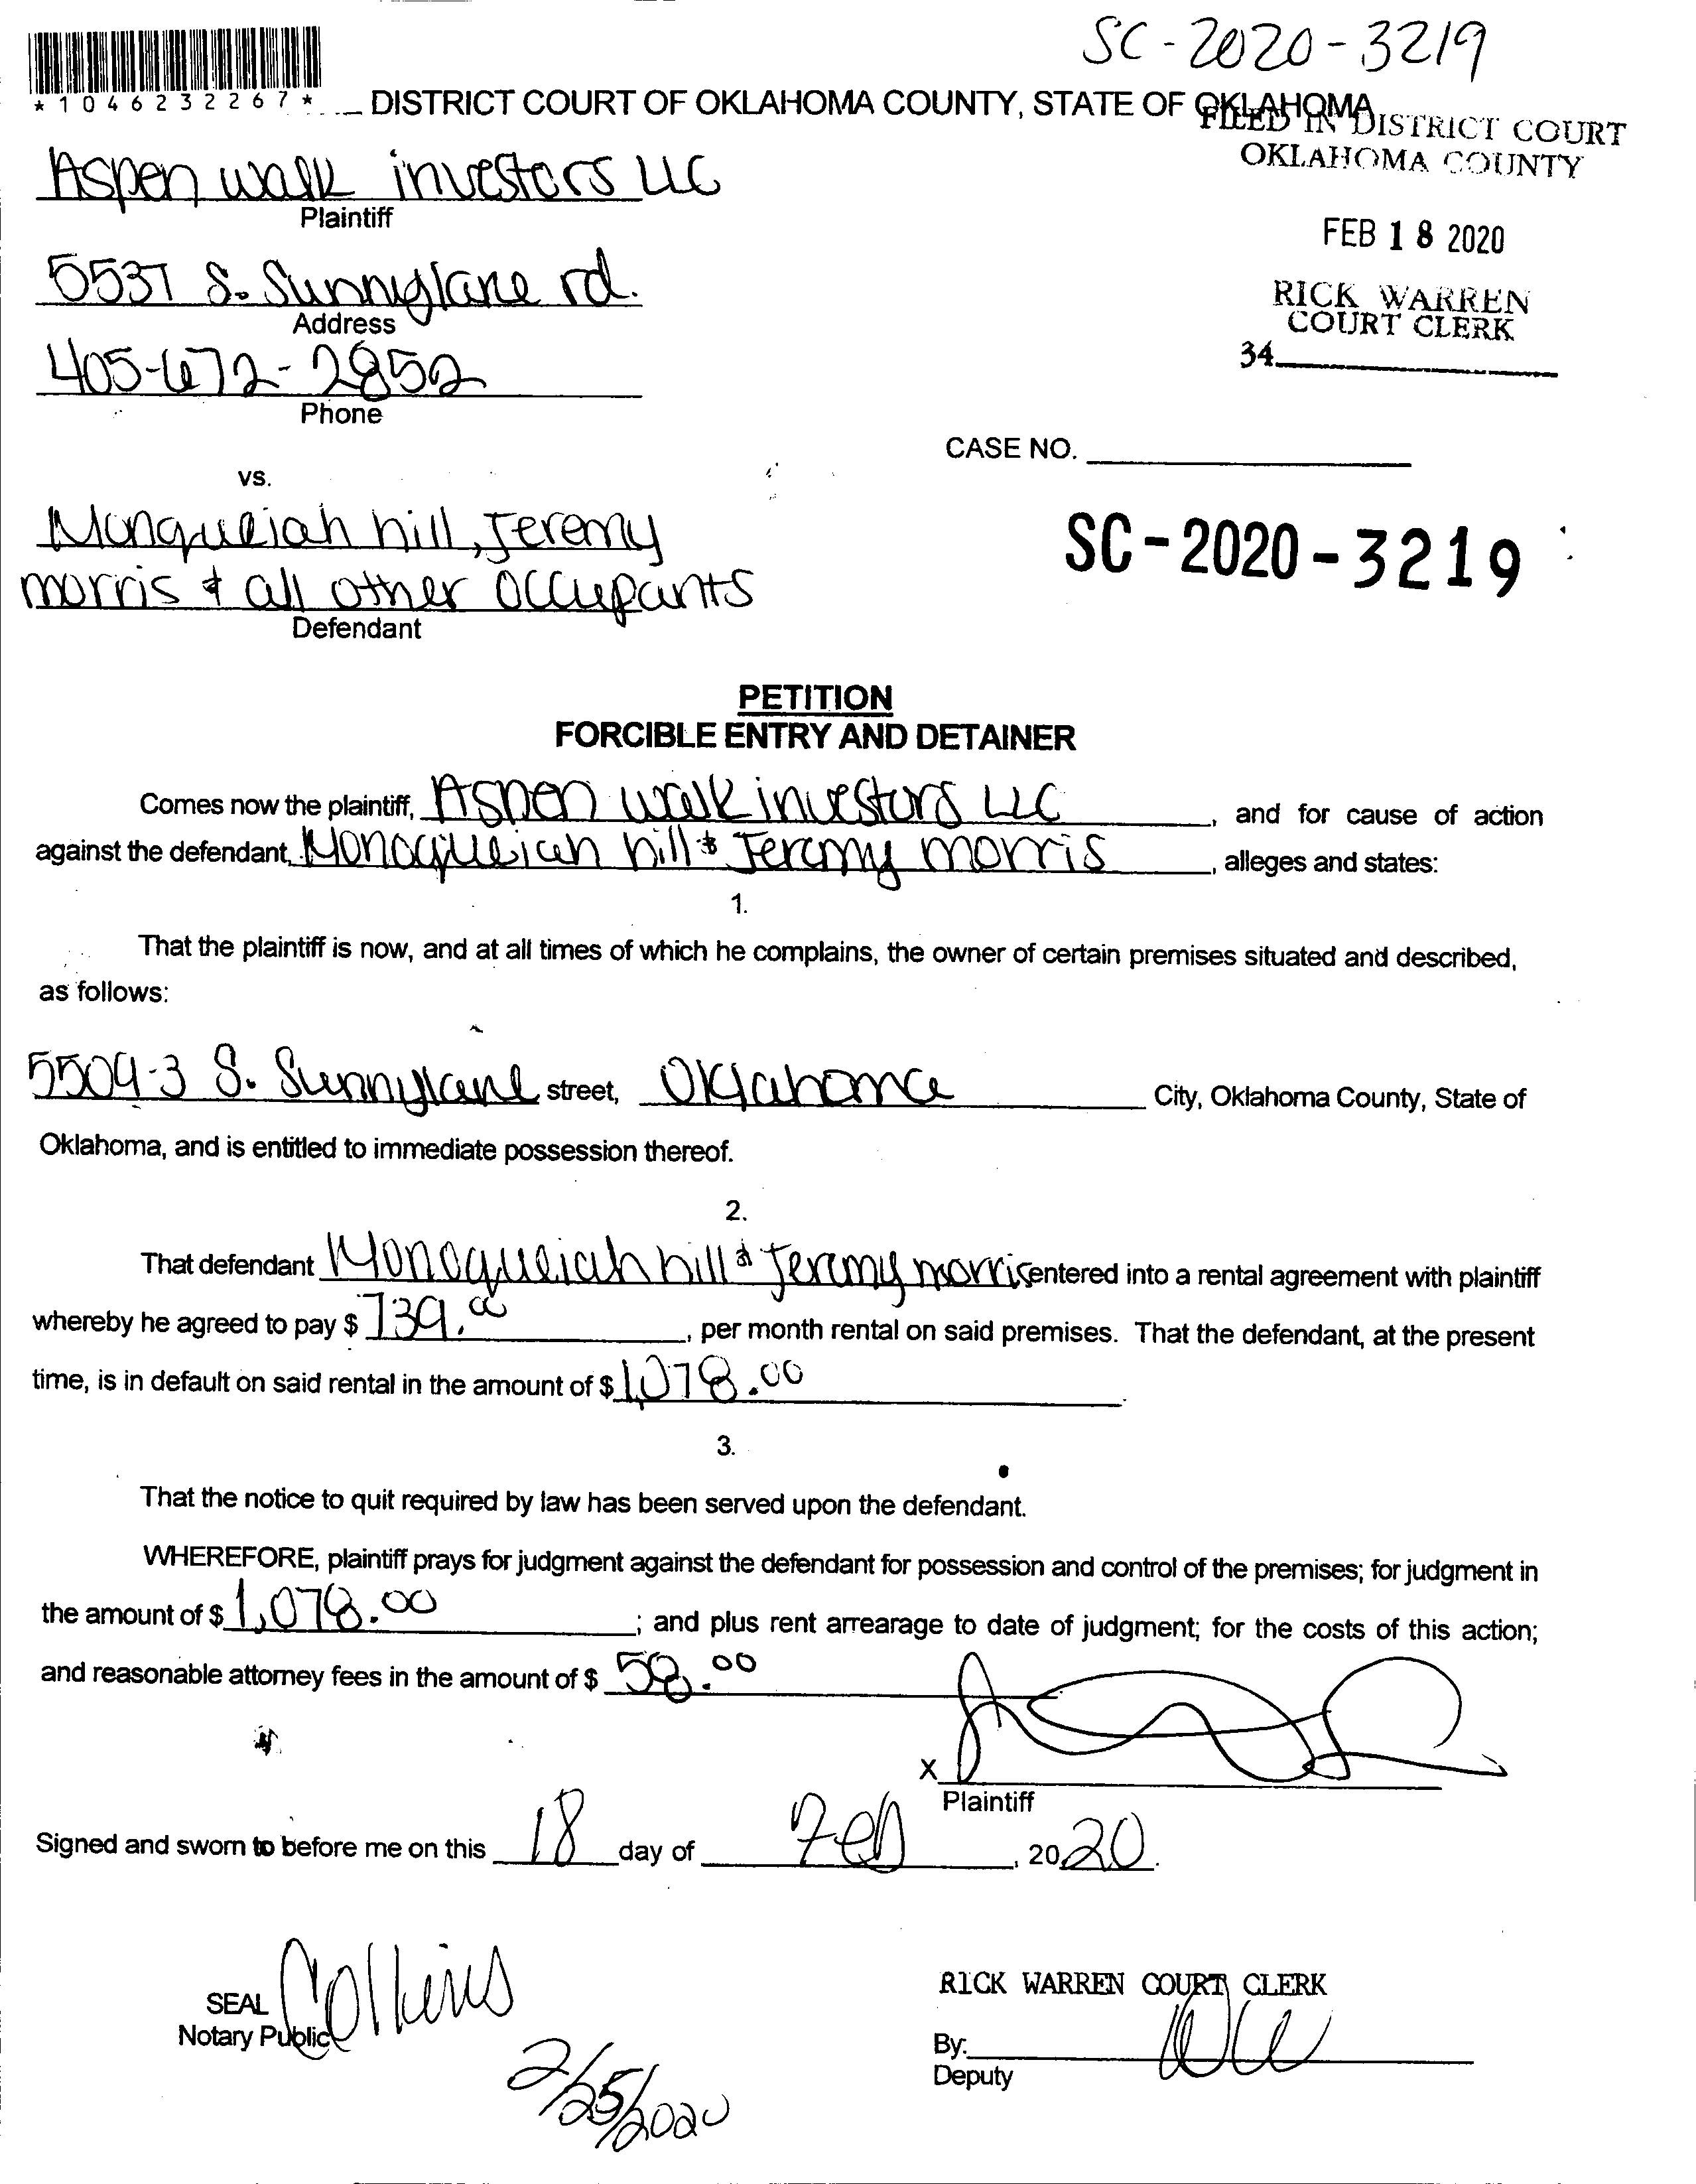 SC-2020-3219
*1046232267*
DISTRICT COURT OF OKLAHOMA COUNTY, STATE OF OKLAHOMA
FILED IN DISTRICT COURT
OKLAHOMA COUNTY
Aspen walk investors LLC
Plaintiff
FEB 18 2020
5537 S. Sunnylane rd.
Address
RICK WARREN
COURT CLERK
34
405-672-2852
Phone
CASE NO.
vs.
hill, Jeremy
morris & all other occupants
Defendant
SC-2020-3219
PETITION
FORCIBLE ENTRY AND DETAINER
Comes now the plaintiff, Aspen walk investors LLC, and for cause of action
against the defendant, Monoqueiah hill & Jeremy morris, alleges and states:
1.
That the plaintiff is now, and at all times of which he complains, the owner of certain premises situated and described,
as follows:
5504-3 S. Sunnylane street, Oklahoma City, Oklahoma County, State of
Oklahoma, and is entitled to immediate possession thereof.
2.
That defendant Monoqueiah hill & Jeremy morris entered into a rental agreement with plaintiff
whereby he agreed to pay $ 739.00, per month rental on said premises. That the defendant, at the present
time, is in default on said rental in the amount of $ 1,078.00
3.
That the notice to quit required by law has been served upon the defendant.
WHEREFORE, plaintiff prays for judgment against the defendant for possession and control of the premises; for judgment in
the amount of $ 1,078.00; and plus rent arrearage to date of judgment; for the costs of this action;
and reasonable attorney fees in the amount of $ 58.00
X
Plaintiff
Signed and sworn to before me on this 18 day of Feb, 2020.
SEAL
Notary Public
Collins
2/25/2020
RICK WARREN COURT CLERK
By:
Deputy